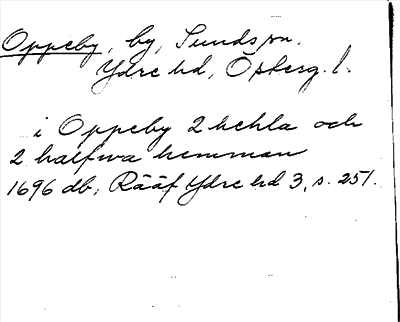 Oppeby, by, Sunds sn.
Ydre hd, Österg. l.
i Oppeby 2 hehla och
2 halfwa hemman
1696 db, Rääf Ydre hd 3, s. 251.